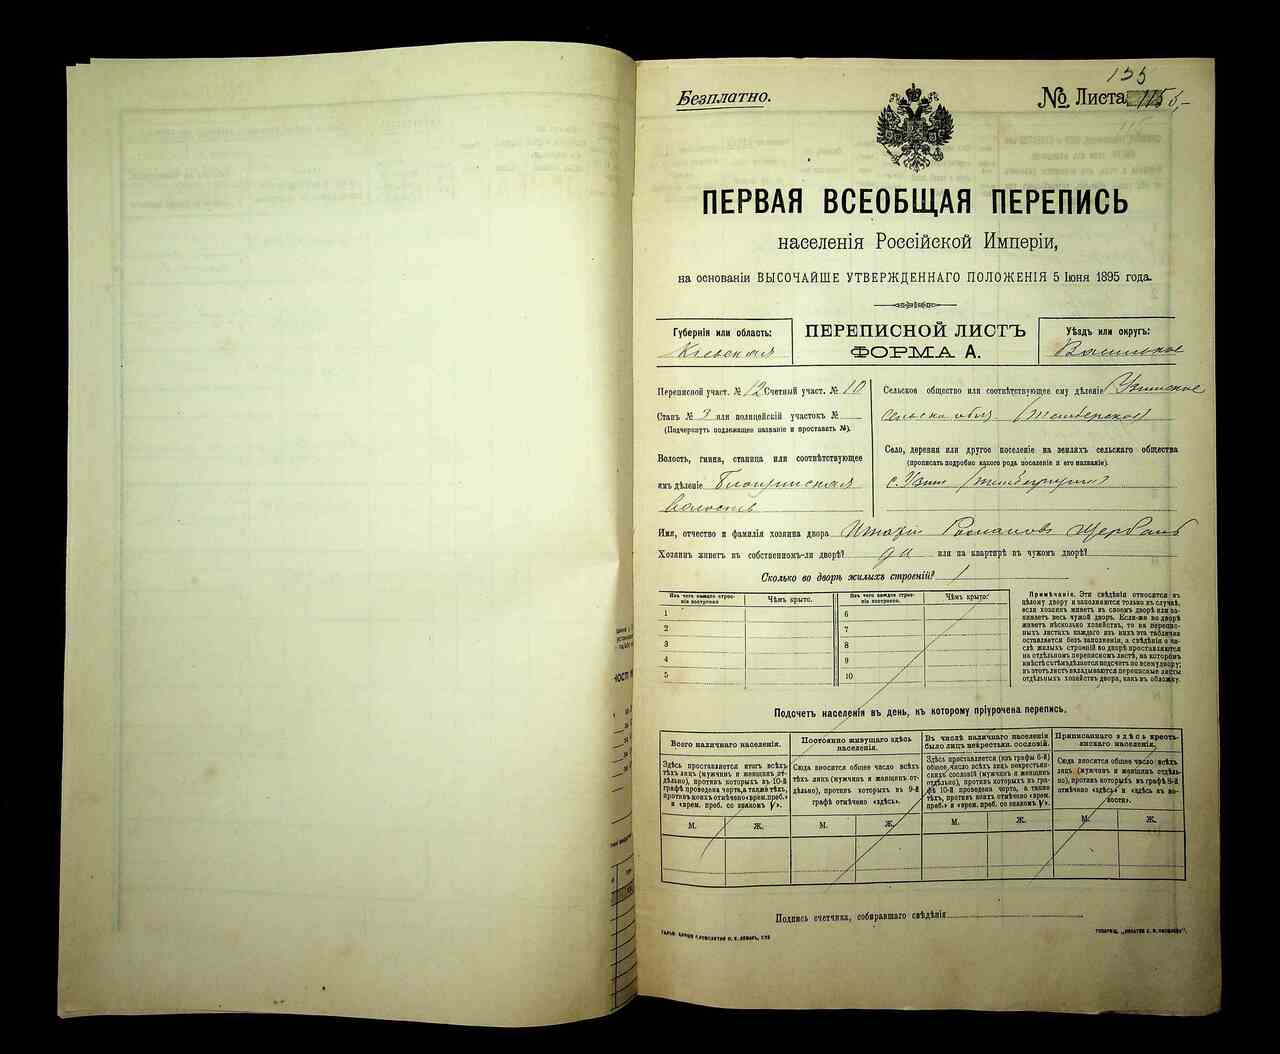 155
Безплатно.
№ Листа 115
ПЕРВАЯ ВСЕОБЩАЯ ПЕРЕПИСЬ
населенія Россійской Имперіи,
на основаніи ВЫСОЧАЙШЕ УТВЕРЖДЕННАГО ПОЛОЖЕНІЯ 5 Іюня 1895 года.
Губернія или область:
Кіевская
ПЕРЕПИСНОЙ ЛИСТЪ
ФОРМА А.
Уѣздъ или округъ:
Переписной участ. № 12 Счетный участ. № 10
Станъ № 3 или полицейскій участокъ №
(Подчеркнуть подлежащее названіе и проставить №).
Волость, гмина, станица или соотвѣтствующее
имъ дѣленіе
волость
Сельское общество или соотвѣтствующее ему дѣленіе Узинское
Село, деревня или другое поселеніе на земляхъ сельскаго общества
(прописать подробно какого рода поселеніе и его названіе).
с. Узин
Имя, отчество и фамилія хозяина двора Романовъ Щербань
Хозяинъ живетъ въ собственномъ-ли дворѣ? да или на квартирѣ въ чужомъ дворѣ?
Сколько во дворѣ жилыхъ строеній? 1
Изъ чего каждое строеніе построено. Чѣмъ крыто. Изъ чего каждое строеніе построено. Чѣмъ крыто.
1 6
2 7
3 8
4 9
5 10
Примѣчаніе. Эти свѣдѣнія относятся къ
цѣлому двору и заполняются только въ случаѣ,
если хозяинъ живетъ въ своемъ дворѣ или занимаетъ
весь чужой дворъ. Если-же во дворѣ
живетъ нѣсколько хозяйствъ, то на переписныхъ
листахъ каждаго изъ нихъ эта табличка
оставляется безъ заполненія, а свѣдѣнія о числѣ
жилыхъ строеній во дворѣ проставляются
на отдѣльномъ переписномъ листѣ, на которомъ
вмѣстѣ съ тѣмъ дѣлается подсчетъ по всему двору;
въ этотъ листъ вкладываются переписные листы
отдѣльныхъ хозяйствъ двора, какъ въ обложку.
Подсчетъ населенія въ день, къ которому пріурочена перепись.
Всего наличнаго населенія.
Здѣсь проставляется итогъ всѣхъ
тѣхъ лицъ (мужчинъ и женщинъ отдѣльно),
противъ которыхъ въ 10-й
графѣ проведена черта, а также тѣхъ,
противъ коихъ отмѣчено «врем. преб.»
и «врем. преб. со знакомъ V».
М. Ж.
Постоянно живущаго здѣсь
населенія.
Сюда вносится общее число всѣхъ
тѣхъ лицъ (мужчинъ и женщинъ отдѣльно),
противъ которыхъ въ 9-й
графѣ отмѣчено «здѣсь».
М. Ж.
Въ числѣ наличнаго населенія
было лицъ некрестьян. сословій.
Здѣсь проставляется (изъ графы 6-й)
общее число всѣхъ лицъ некрестьянскихъ
сословій (мужчинъ и женщинъ
отдѣльно), противъ которыхъ въ графѣ
10-й проведена черта, а также
тѣхъ, противъ коихъ отмѣчено «врем.
преб.» и «врем. преб. со знакомъ V».
М. Ж.
Приписаннаго здѣсь крестьянскаго
населенія.
Сюда вносится общее число всѣхъ
лицъ (мужчинъ и женщинъ отдѣльно),
противъ которыхъ въ графѣ 8-й
отмѣчено «здѣсь» и «здѣсь въ волости».
М. Ж.
Подпись счетчика, собиравшаго свѣдѣнія